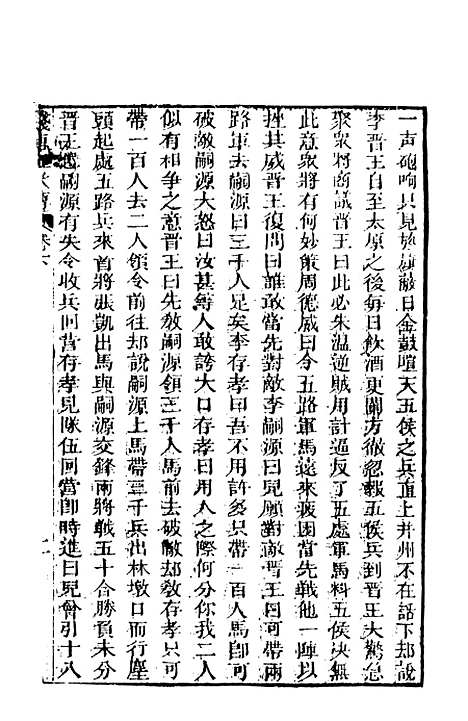 一声砲响只見旌旗蔽日金鼓喧天五侯之兵直上并州不在話下却說
李晋王自至太原之後每日飲酒更闌方徹忽報五侯兵到晋王大驚急
聚衆將商議晋王曰此必朱温逆賊用計逼反了五處軍馬料五侯决無
此意衆將有何妙策周德威曰今五路軍馬遠來疲困當先戦他一陣以
挫其威晋王復問曰誰敢當先對敵李嗣源曰兒願對敵晋王曰可帶兩
路軍去嗣源曰三千人足矣李存孝曰吾不用許多只帶一百人馬卽可
破敵嗣源大怒曰汝甚縛人敢誇大口存孝曰用人之際何分你我二人
似有相争之意晋王曰先教嗣源領三千人馬前去破敵却教存孝只可
帶一百人去二人領令前往却說嗣源上馬帶三千兵出林墩口而行塵
頭起處五路兵來首將張凱出馬與嗣源交鋒兩將戦五十合勝負未分
晋王恐嗣源有失令收兵囘營存孝見隊伍囘當卽時進曰兒會引十八